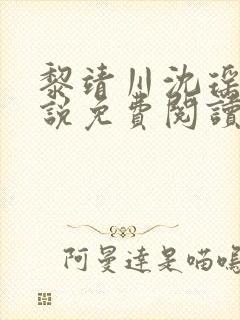 黎靖川沈瑶
說免費閱讀
阿曼達是喵嗚